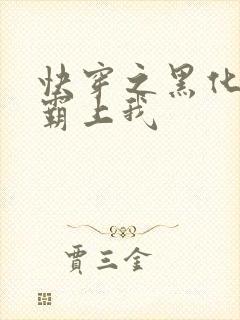 快穿之黑化
霸上我
贾三金